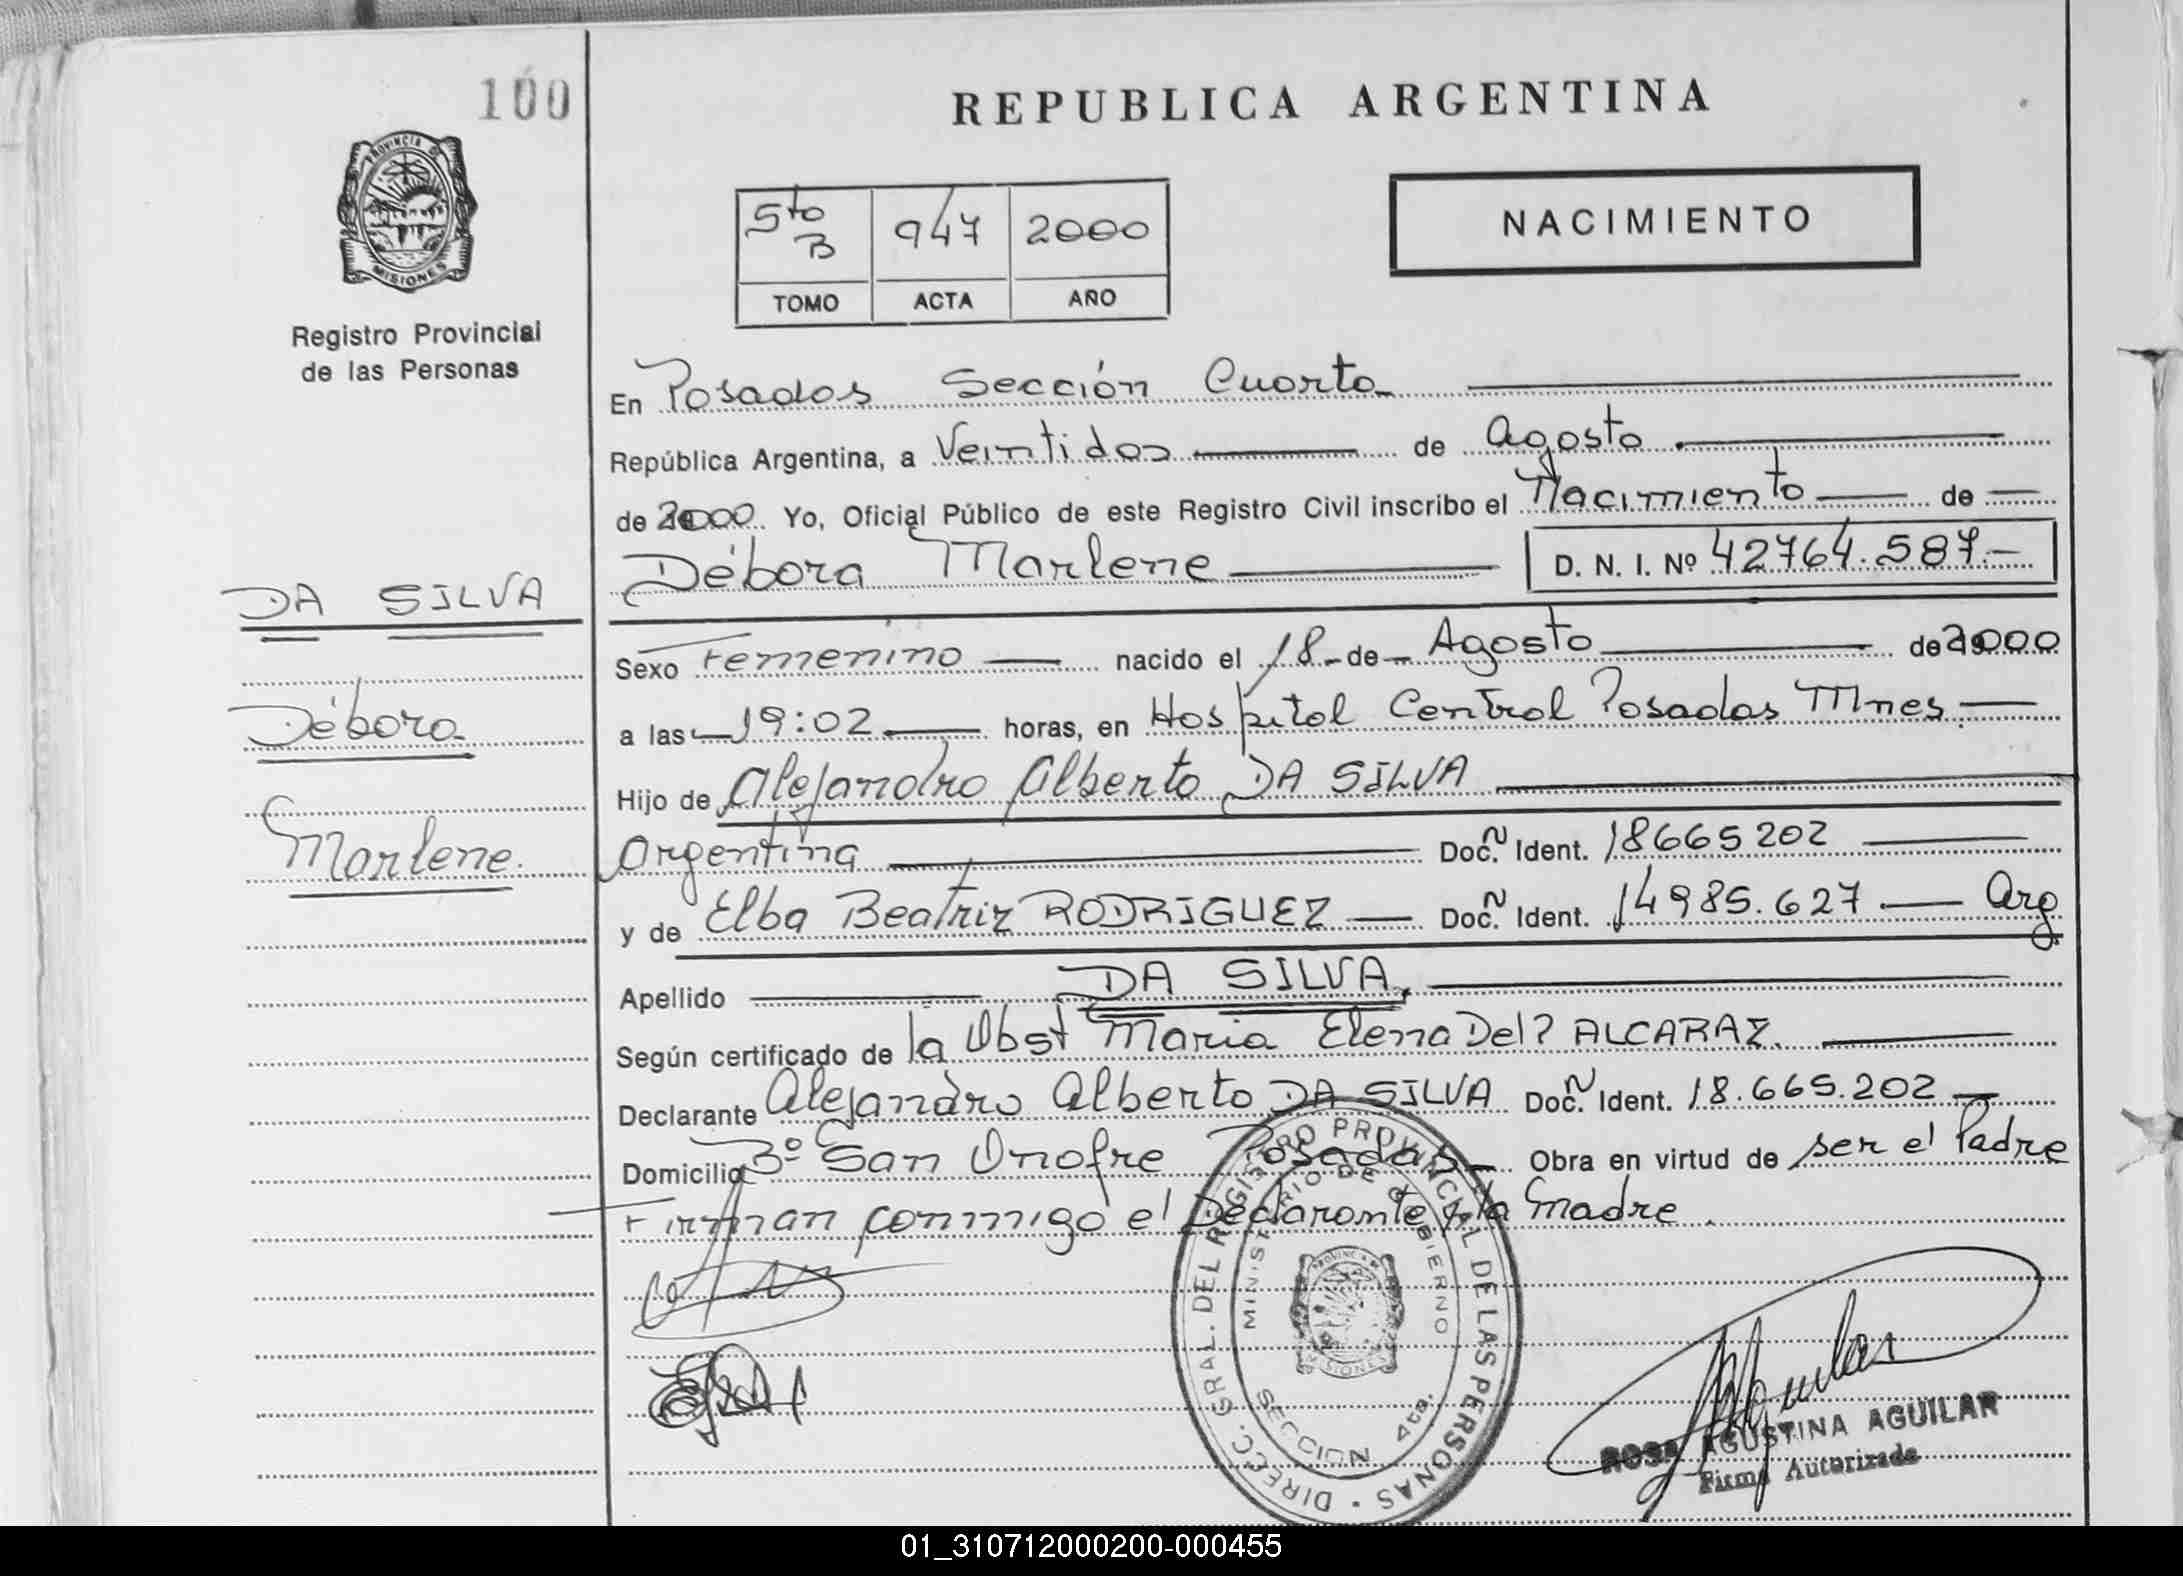 100
REPUBLICA ARGENTINA
PROVINCIA DE
MISIONES
Registro Provincial
de las Personas
5to B 947 2000
TOMO ACTA AÑO
NACIMIENTO
En Posadas Sección Cuarta
República Argentina, a Veintidos de Agosto
de 2000 Yo, Oficial Público de este Registro Civil inscribo el Nacimiento de
Débora Marlene D. N. I. Nº 42764.587.-
DA SILVA
Débora
Marlene.
Sexo Femenino nacido el 18 de Agosto de 2000
a las 19:02 horas, en Hospital Central Posadas Mnes.
Hijo de Alejandro Alberto DA SILVA
Argentina Doc. Ident. 18665202
y de Elba Beatriz RODRIGUEZ Doc. Ident. 14985.627 Arg.
Apellido DA SILVA.
Según certificado de la Obst Maria Elena Del ALCARAZ.
Declarante Alejandro Alberto DA SILVA Doc. Ident. 18.665.202
Domicilio Bº San Onofre Posadas Obra en virtud de ser el Padre
Firman conmigo el Declarante y la Madre.
DIRECC. GRAL. DEL REGISTRO PROVINCIAL DE LAS PERSONAS
MINISTERIO DE GOBIERNO
PROVINCIA
MISIONES
SECCION 4ta.
Aguilar
ROSA AGUSTINA AGUILAR
Firma Autorizada
01_310712000200-000455